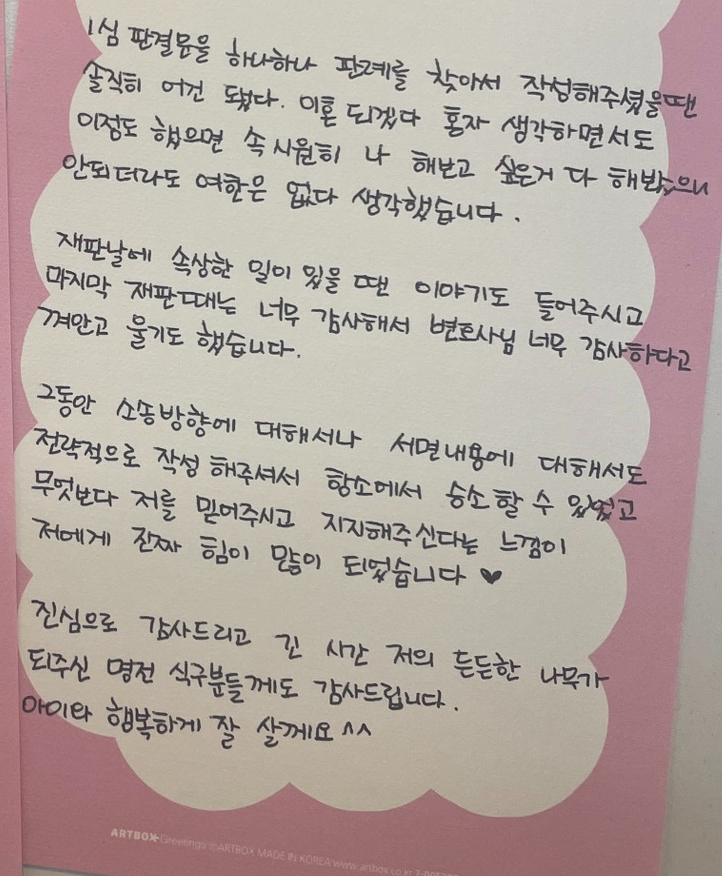 1심 판결문을 하나하나 판례를 찾아서 작성해주셨을땐
솔직히 어건 됐다. 이혼 되겠다 혼자 생각하면서도
이정도 했으면 속 시원히 나 해보고 싶은거 다 해봤으니
안되더라도 여한은 없다 생각했습니다.
재판날에 속상한 일이 있을 땐 이야기도 들어주시고
마지막 재판때는 너무 감사해서 변호사님 너무 감사하다고
껴안고 울기도 했습니다.
그동안 소송방향에 대해서나 서면내용에 대해서도
전략적으로 작성 해주셔서 항소에서 승소할 수 있었고
무엇보다 저를 믿어주시고 지지해주신다는 느낌이
저에게 진짜 힘이 많이 되었습니다 ♥
진심으로 감사드리고 긴 시간 저의 든든한 나무가
되주신 명전 식구분들께도 감사드립니다.
아이와 행복하게 잘 살께요 ^^
ARTBOX Greetings ©ARTBOX MADE IN KOREA www.artbox.co.kr